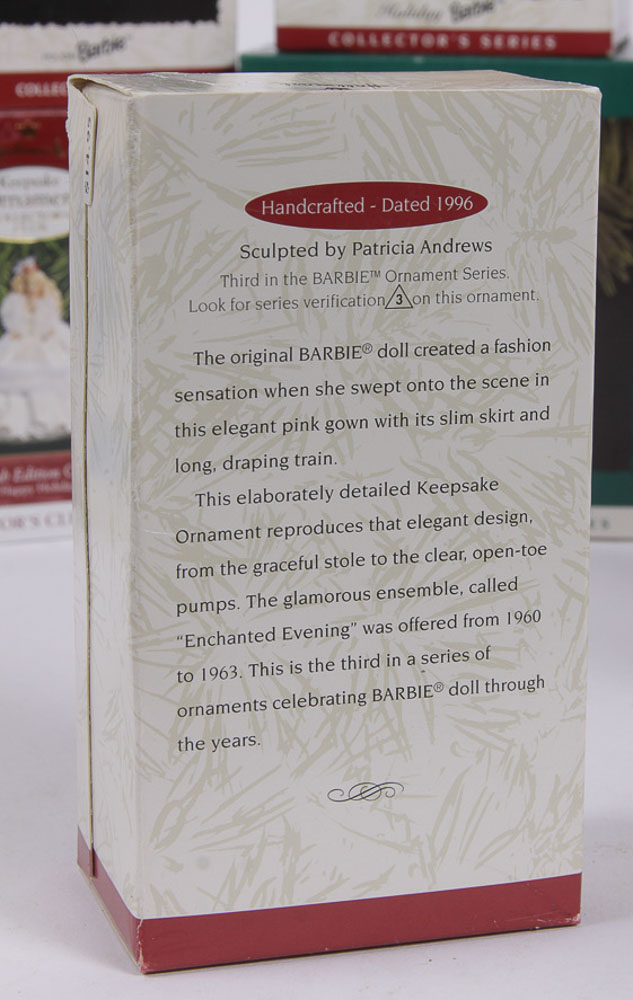 Barbie
COLLEC
Holiday Barbie
COLLECTOR'S SERIES
$14.95
Keepsake
Handcrafted - Dated 1996
Sculpted by Patricia Andrews
Third in the BARBIE™ Ornament Series.
Look for series verification 3 on this ornament.
The original BARBIE® doll created a fashion
sensation when she swept onto the scene in
this elegant pink gown with its slim skirt and
long, draping train.
This elaborately detailed Keepsake
Ornament reproduces that elegant design,
from the graceful stole to the clear, open-toe
pumps. The glamorous ensemble, called
“Enchanted Evening” was offered from 1960
to 1963. This is the third in a series of
ornaments celebrating BARBIE® doll through
the years.